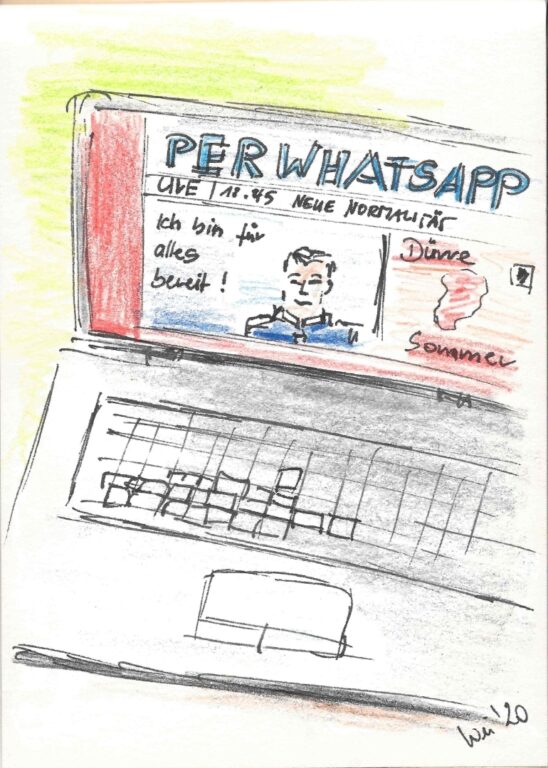 PER WHATSAPP
LIVE | 18.45 NEUE NORMALITÄT
Ich bin für
alles
bereit !
Dürre
Sommer
'20